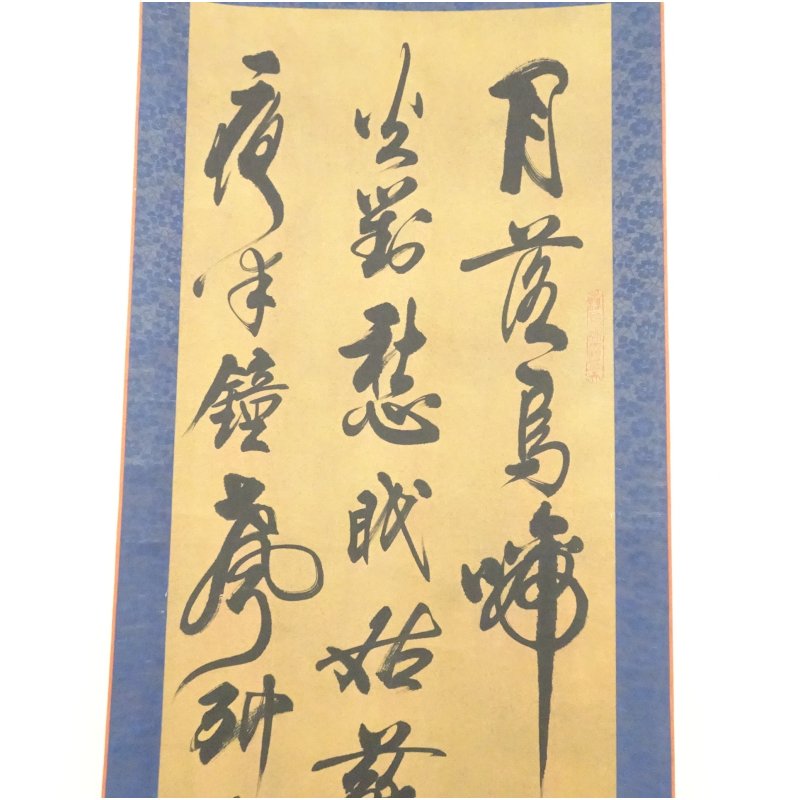 月落烏啼
火對愁眠姑蘇
夜半鐘聲到